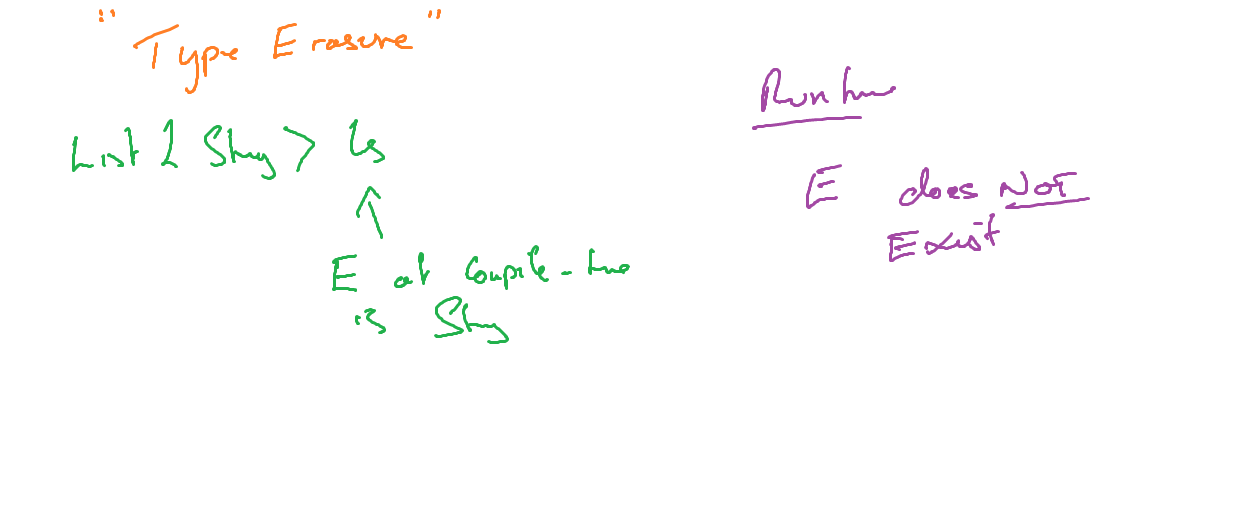 "Type Erasure"
List < String > ls
E at compile-time
is String
Runtime
E does NOT
Exist